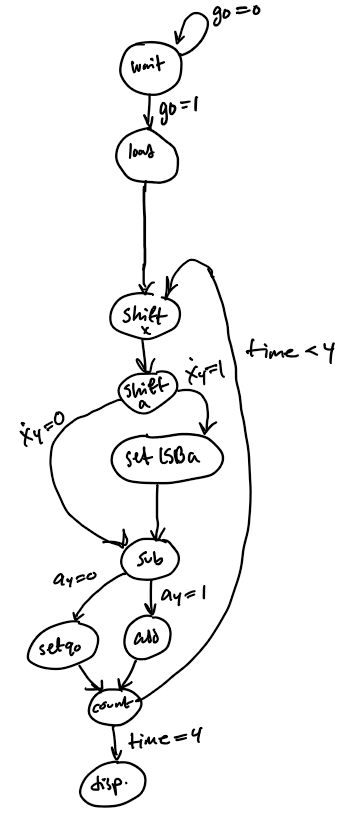 go=0
wait
go=1
load
shift
x
time<4
shift
a
x4=1
x4=0
set LSBa
sub
a4=0
a4=1
setq0
add
count
time=4
disp.